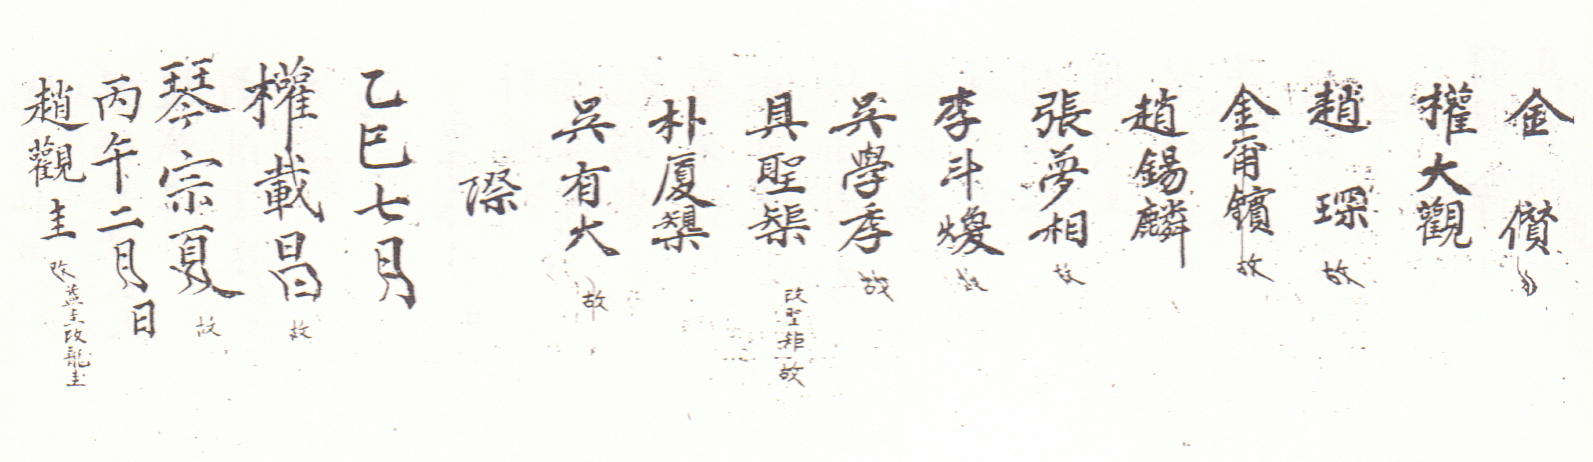 金 儧
權大觀
趙 琛 故
金甯鑌 故
趙錫麟
張夢相 故
李斗煥 故
吳學季 故
具聖榘 改聖矩 故
朴厦榘
吳有大 故
際
乙巳七月
權載昌 故
琴宗夏 故
丙午二月 日
趙觀圭 改益圭改龍圭